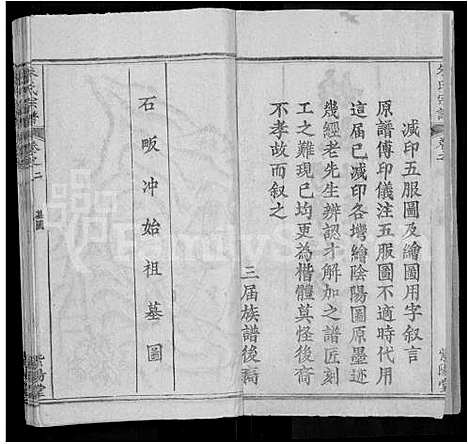 朱氏宗譜
卷之二
紫陽堂
減印五服圖及繪圖用字叙言
原譜傅印儀注五服圖不適時代用
這届已减印各塆繪陰陽圖原墨迹
幾經老先生辨認才解加之譜匠刻
工之難現已均更為楷體莫怪後裔
不孝故而叙之
三届族譜後裔
石畈冲始祖墓圖
朱氏宗譜
卷之二
墓圖
紫陽堂
FamilySearch